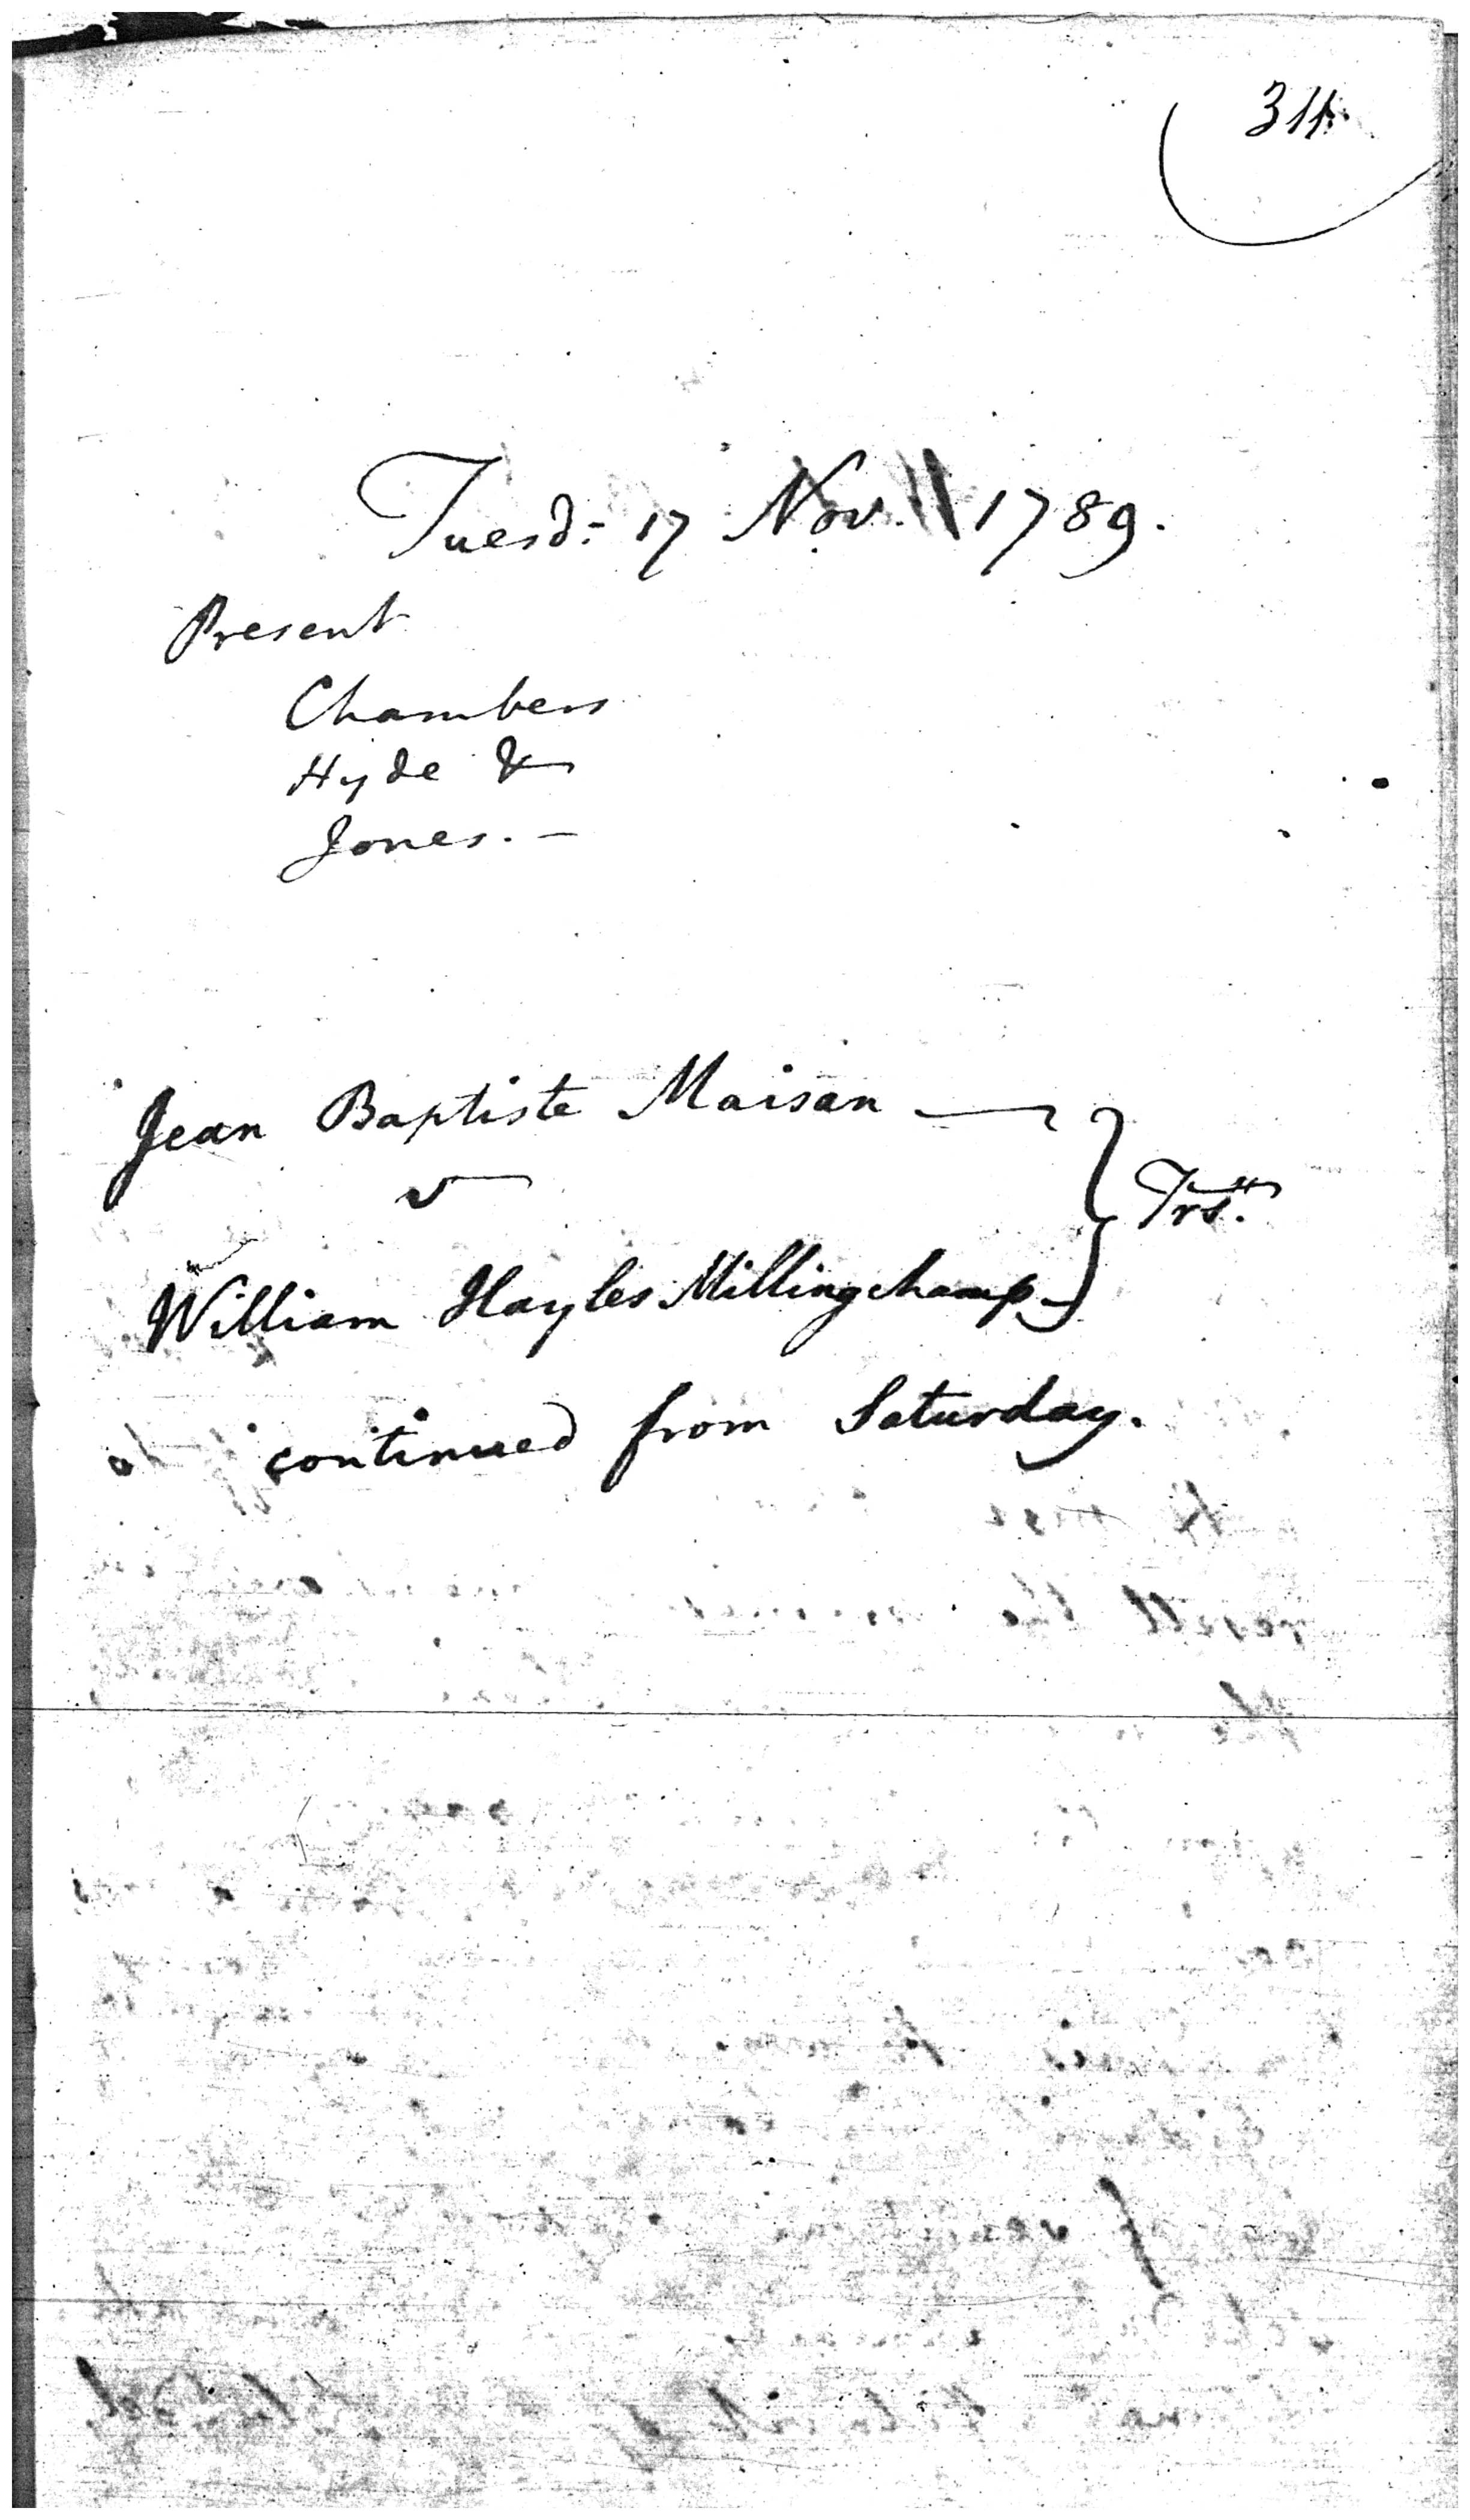 311.
Tuesd: 17 Nov. 1789.
Present
Chambers
Hyde &
Jones. —
Jean Baptiste Maisan —
v
Trs.
William Hayles Millingchamp
continued from Saturday.